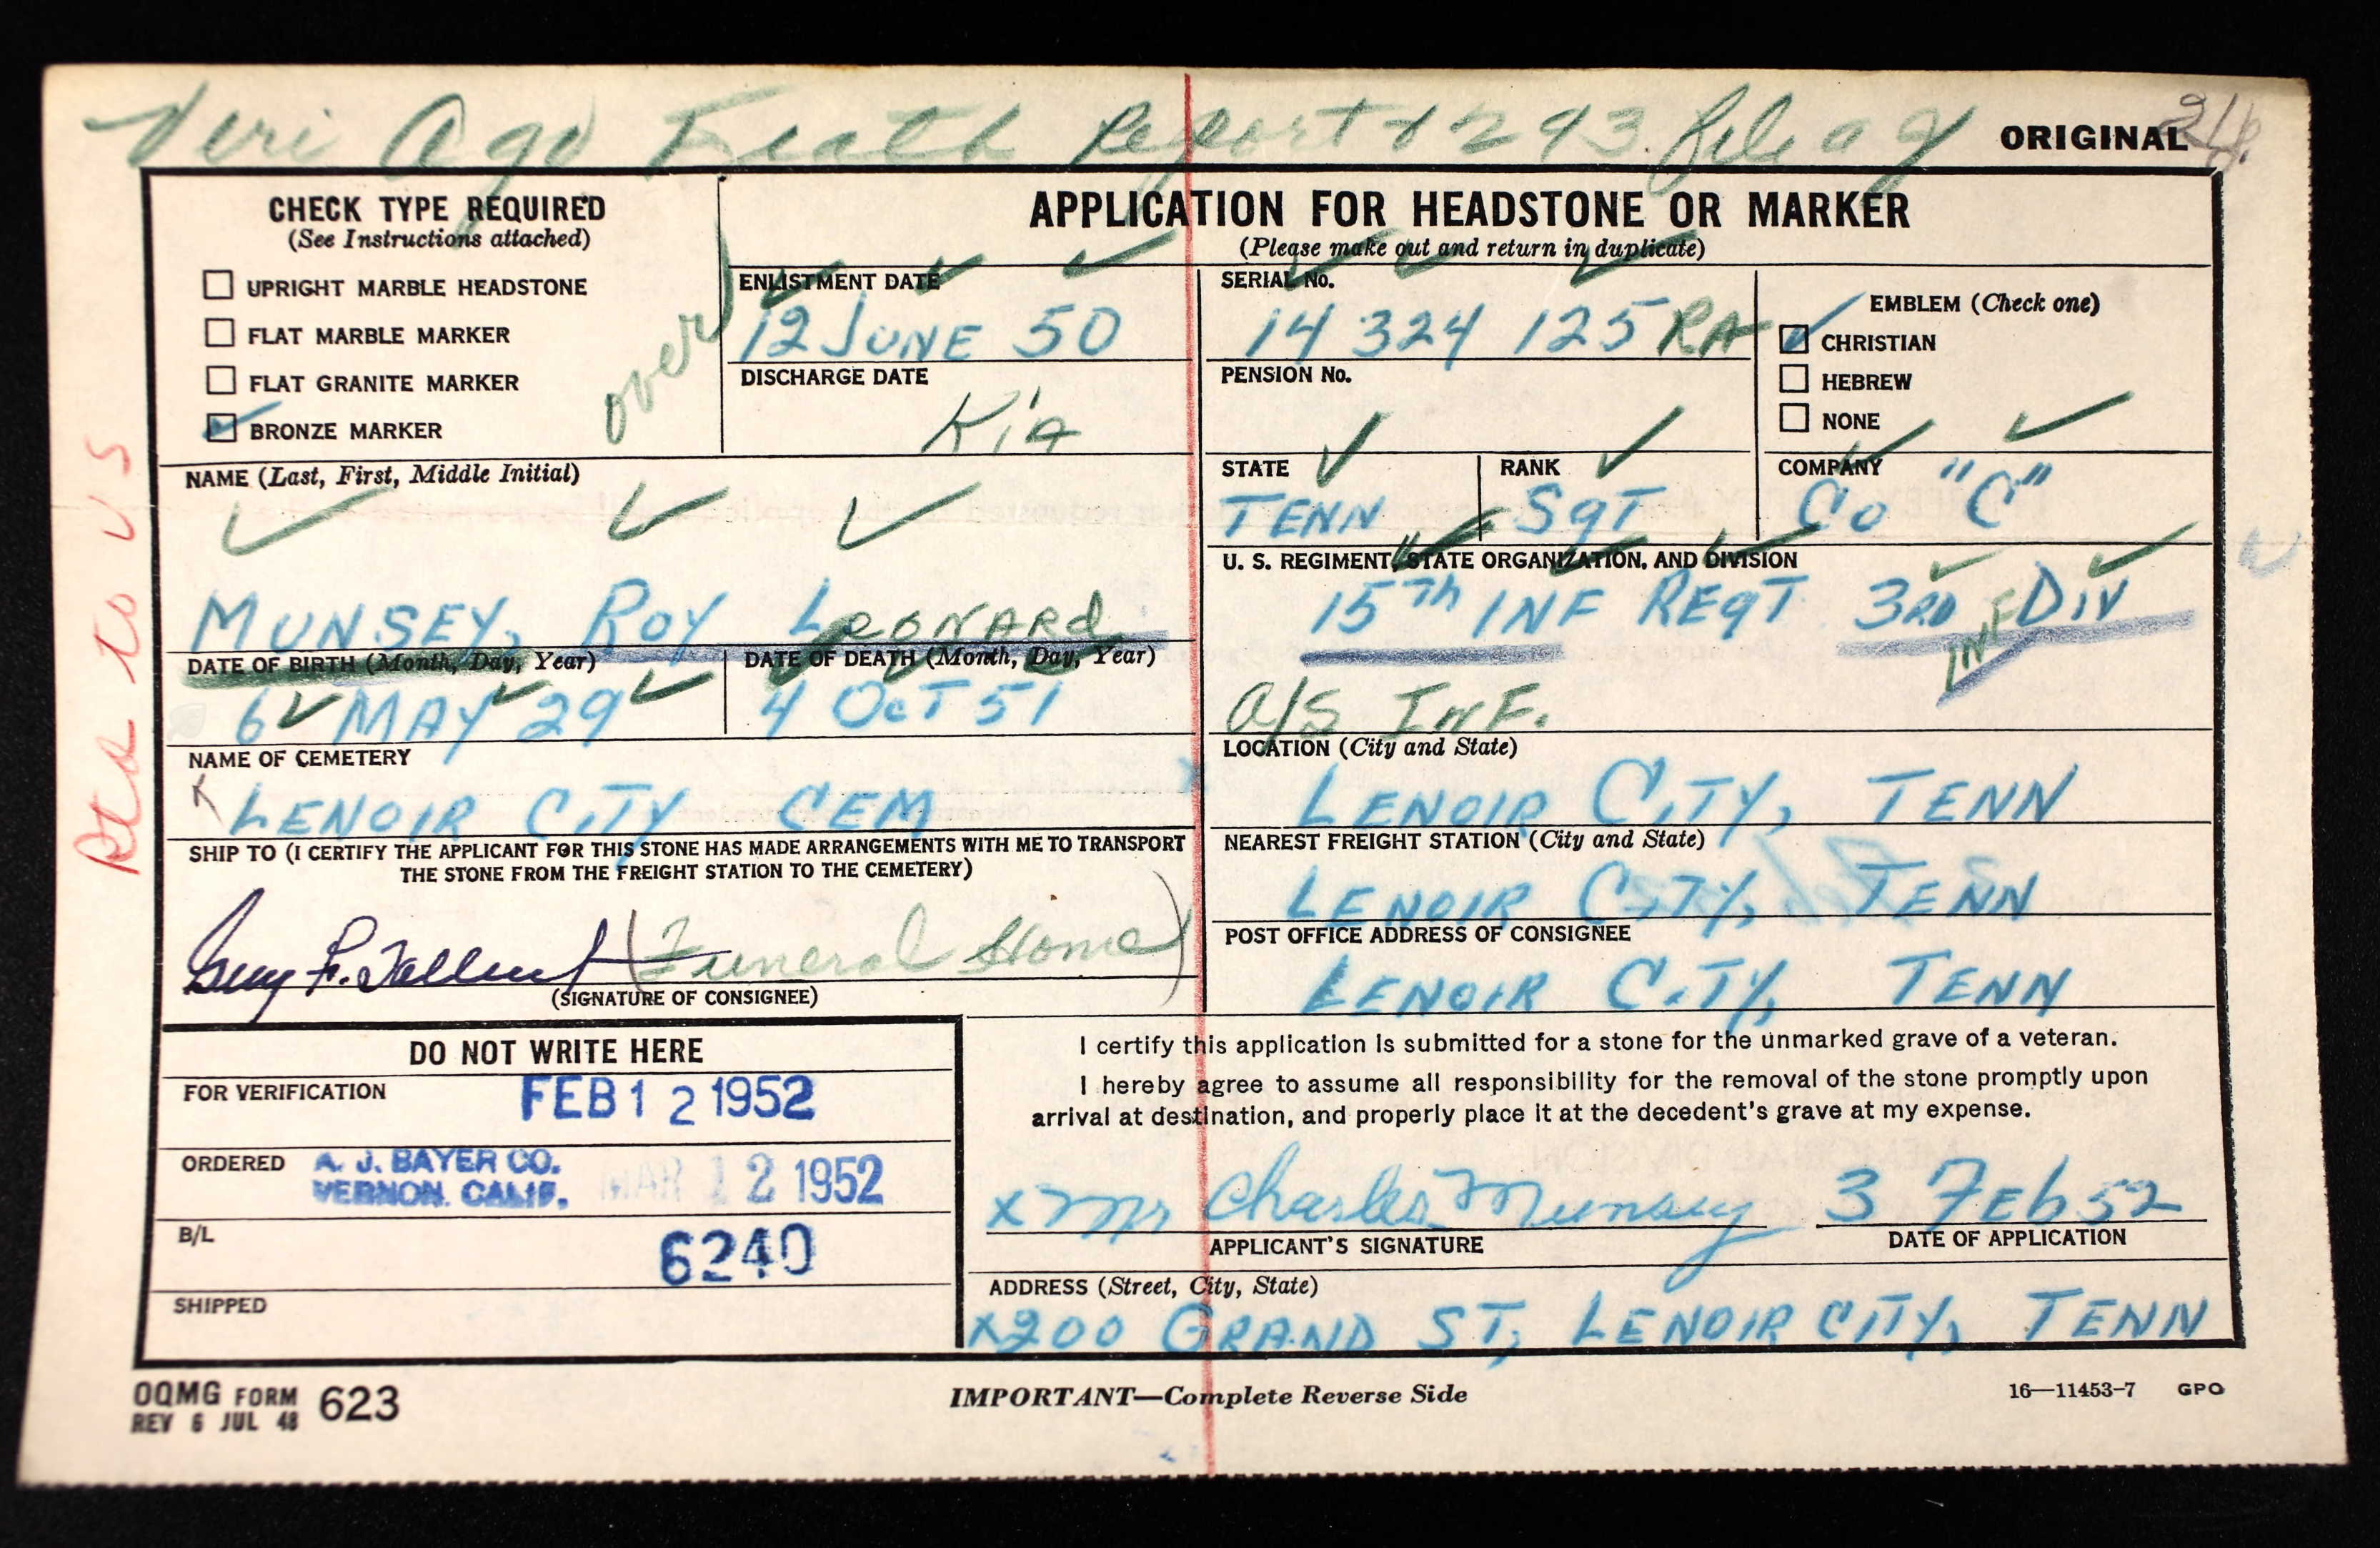 Veri Ago Death Report & 293 file ag
ORIGINAL
CHECK TYPE REQUIRED
(See Instructions attached)
UPRIGHT MARBLE HEADSTONE
FLAT MARBLE MARKER
FLAT GRANITE MARKER
BRONZE MARKER
over
APPLICATION FOR HEADSTONE OR MARKER
(Please make out and return in duplicate)
ENLISTMENT DATE
12 JUNE 50
DISCHARGE DATE
Kia
SERIAL No.
14 324 125 RA
PENSION No.
EMBLEM (Check one)
CHRISTIAN
HEBREW
NONE
NAME (Last, First, Middle Initial)
MUNSEY, ROY LEONARD
STATE
TENN
RANK
SgT
COMPANY
Co "C"
U. S. REGIMENT, STATE ORGANIZATION, AND DIVISION
15Th INF REgT 3RD INF DIV
a/S INF.
DATE OF BIRTH (Month, Day, Year)
6 MAY 29
DATE OF DEATH (Month, Day, Year)
4 OcT 51
NAME OF CEMETERY
LENOIR CITY CEM
LOCATION (City and State)
LENOIR CITY, TENN
SHIP TO (I CERTIFY THE APPLICANT FOR THIS STONE HAS MADE ARRANGEMENTS WITH ME TO TRANSPORT
THE STONE FROM THE FREIGHT STATION TO THE CEMETERY)
(Funeral Home)
(SIGNATURE OF CONSIGNEE)
NEAREST FREIGHT STATION (City and State)
LENOIR CITY, TENN
POST OFFICE ADDRESS OF CONSIGNEE
LENOIR CITY, TENN
DO NOT WRITE HERE
FOR VERIFICATION
FEB 12 1952
ORDERED
A. J. BAYER CO.
VERNON. CALIF.
MAR 12 1952
B/L
6240
SHIPPED
I certify this application is submitted for a stone for the unmarked grave of a veteran.
I hereby agree to assume all responsibility for the removal of the stone promptly upon
arrival at destination, and properly place it at the decedent's grave at my expense.
x Mr Charles Munsey
3 Feb 52
APPLICANT'S SIGNATURE
DATE OF APPLICATION
ADDRESS (Street, City, State)
x200 GRAND ST, LENOIR CITY, TENN
OQMG FORM 623
REV 6 JUL 48
IMPORTANT—Complete Reverse Side
16—11453-7 GPO